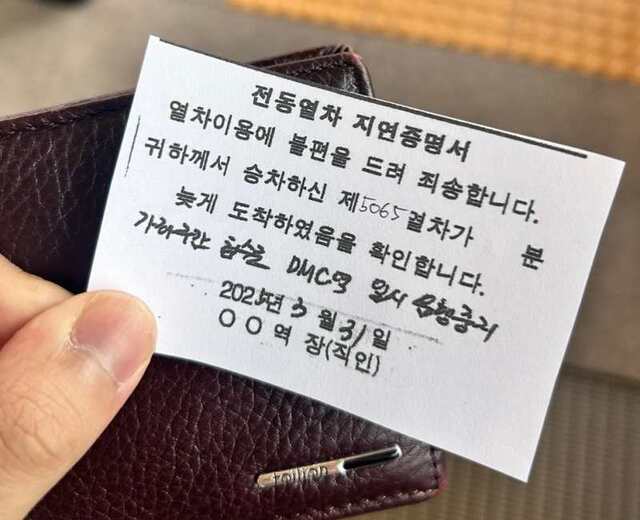 전동열차 지연증명서
열차이용에 불편을 드려 죄송합니다.
귀하께서 승차하신 제5065열차가 분
늦게 도착하였음을 확인합니다.
DMC역 일시 운행중지
2025년 3월 31일
○ ○ 역 장(직인)